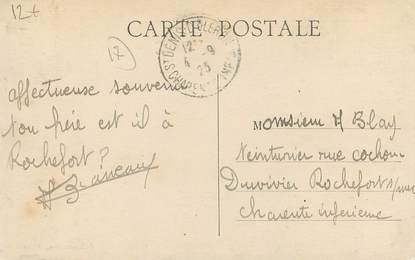 12t
CARTE POSTALE
17
ST DENIS D'OLERON
12
4 -9
23
affectueuse souvenir
ton frère est il à
Rochefort?
Monsieur A Blay
teinturier rue cochon
Duvivier Rochefort s/mer
charente inferieure